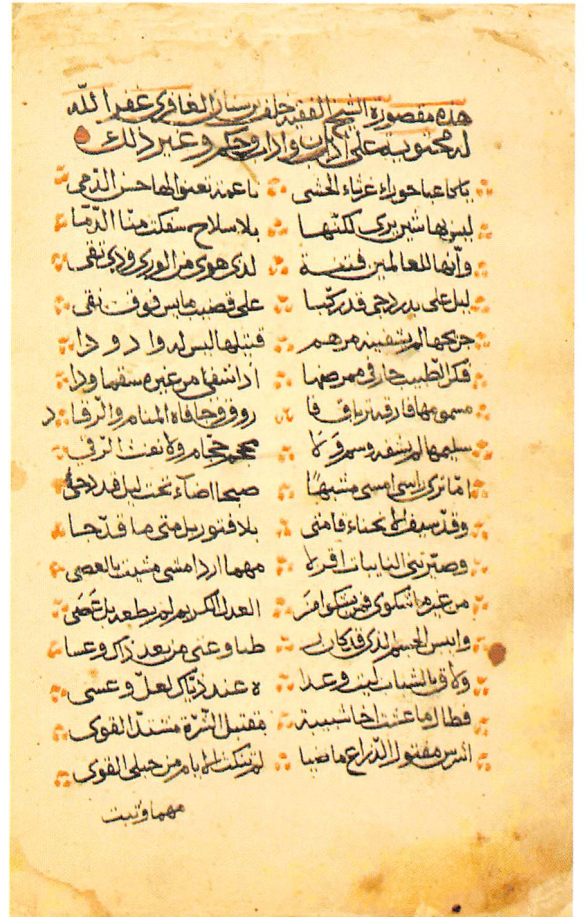 هذه مقصورة الشيخ الفقيه خلف بن سنان الغافري غفر الله
له محتوية على اداب وحكم وغير ذلك
يا كاعبا حوراء غرثاء الحشى يا عمد تعنو لها حسن الدمى
ليس بها شين يرى لكنها بلا سلاح سفكت منا الدما
وانها للعالمين فتنة لدى هوى من الورى وذي تقى
ليل على بدر دجى قد ركبا على قضيب مايس فوق نقى
جريحها لم يشفينه مرهم قتيلها ليس له واد ودا
فكر الطبيب حار في ممرضها اذا شفى من غيره سقما ودا
مسموها فارقه ترياق فا
سليمها لم يشفه وسم ولا محجم حجام ولا نفث الرقى
اما ترى راسى امسى مشبها صبحا اضاء تحت ليل قد دجى
وقد سيف الانحناء قامتي بلا فتور بل متى ما قد حا
وصيرتني النايبات اقزلا مهما اردا مشى مشيت بالعصى
من غير ما شكوى فمن يشكوا من العدل الكريم لم يطعه بل عصى
وايبس الجسم الذي قد كان لي طبا وعني من بعد ذاك وعسا
ولاق بالشباب ليت وعدا ه عند ذياك لعل وعسى
فطال ما عنت اخا شبيبة مقتبل الشرة مشتد القوى
اشرس مفتول الذراع ماضيا لم تنكث الايام من حبلى القوى
مهما وثبت